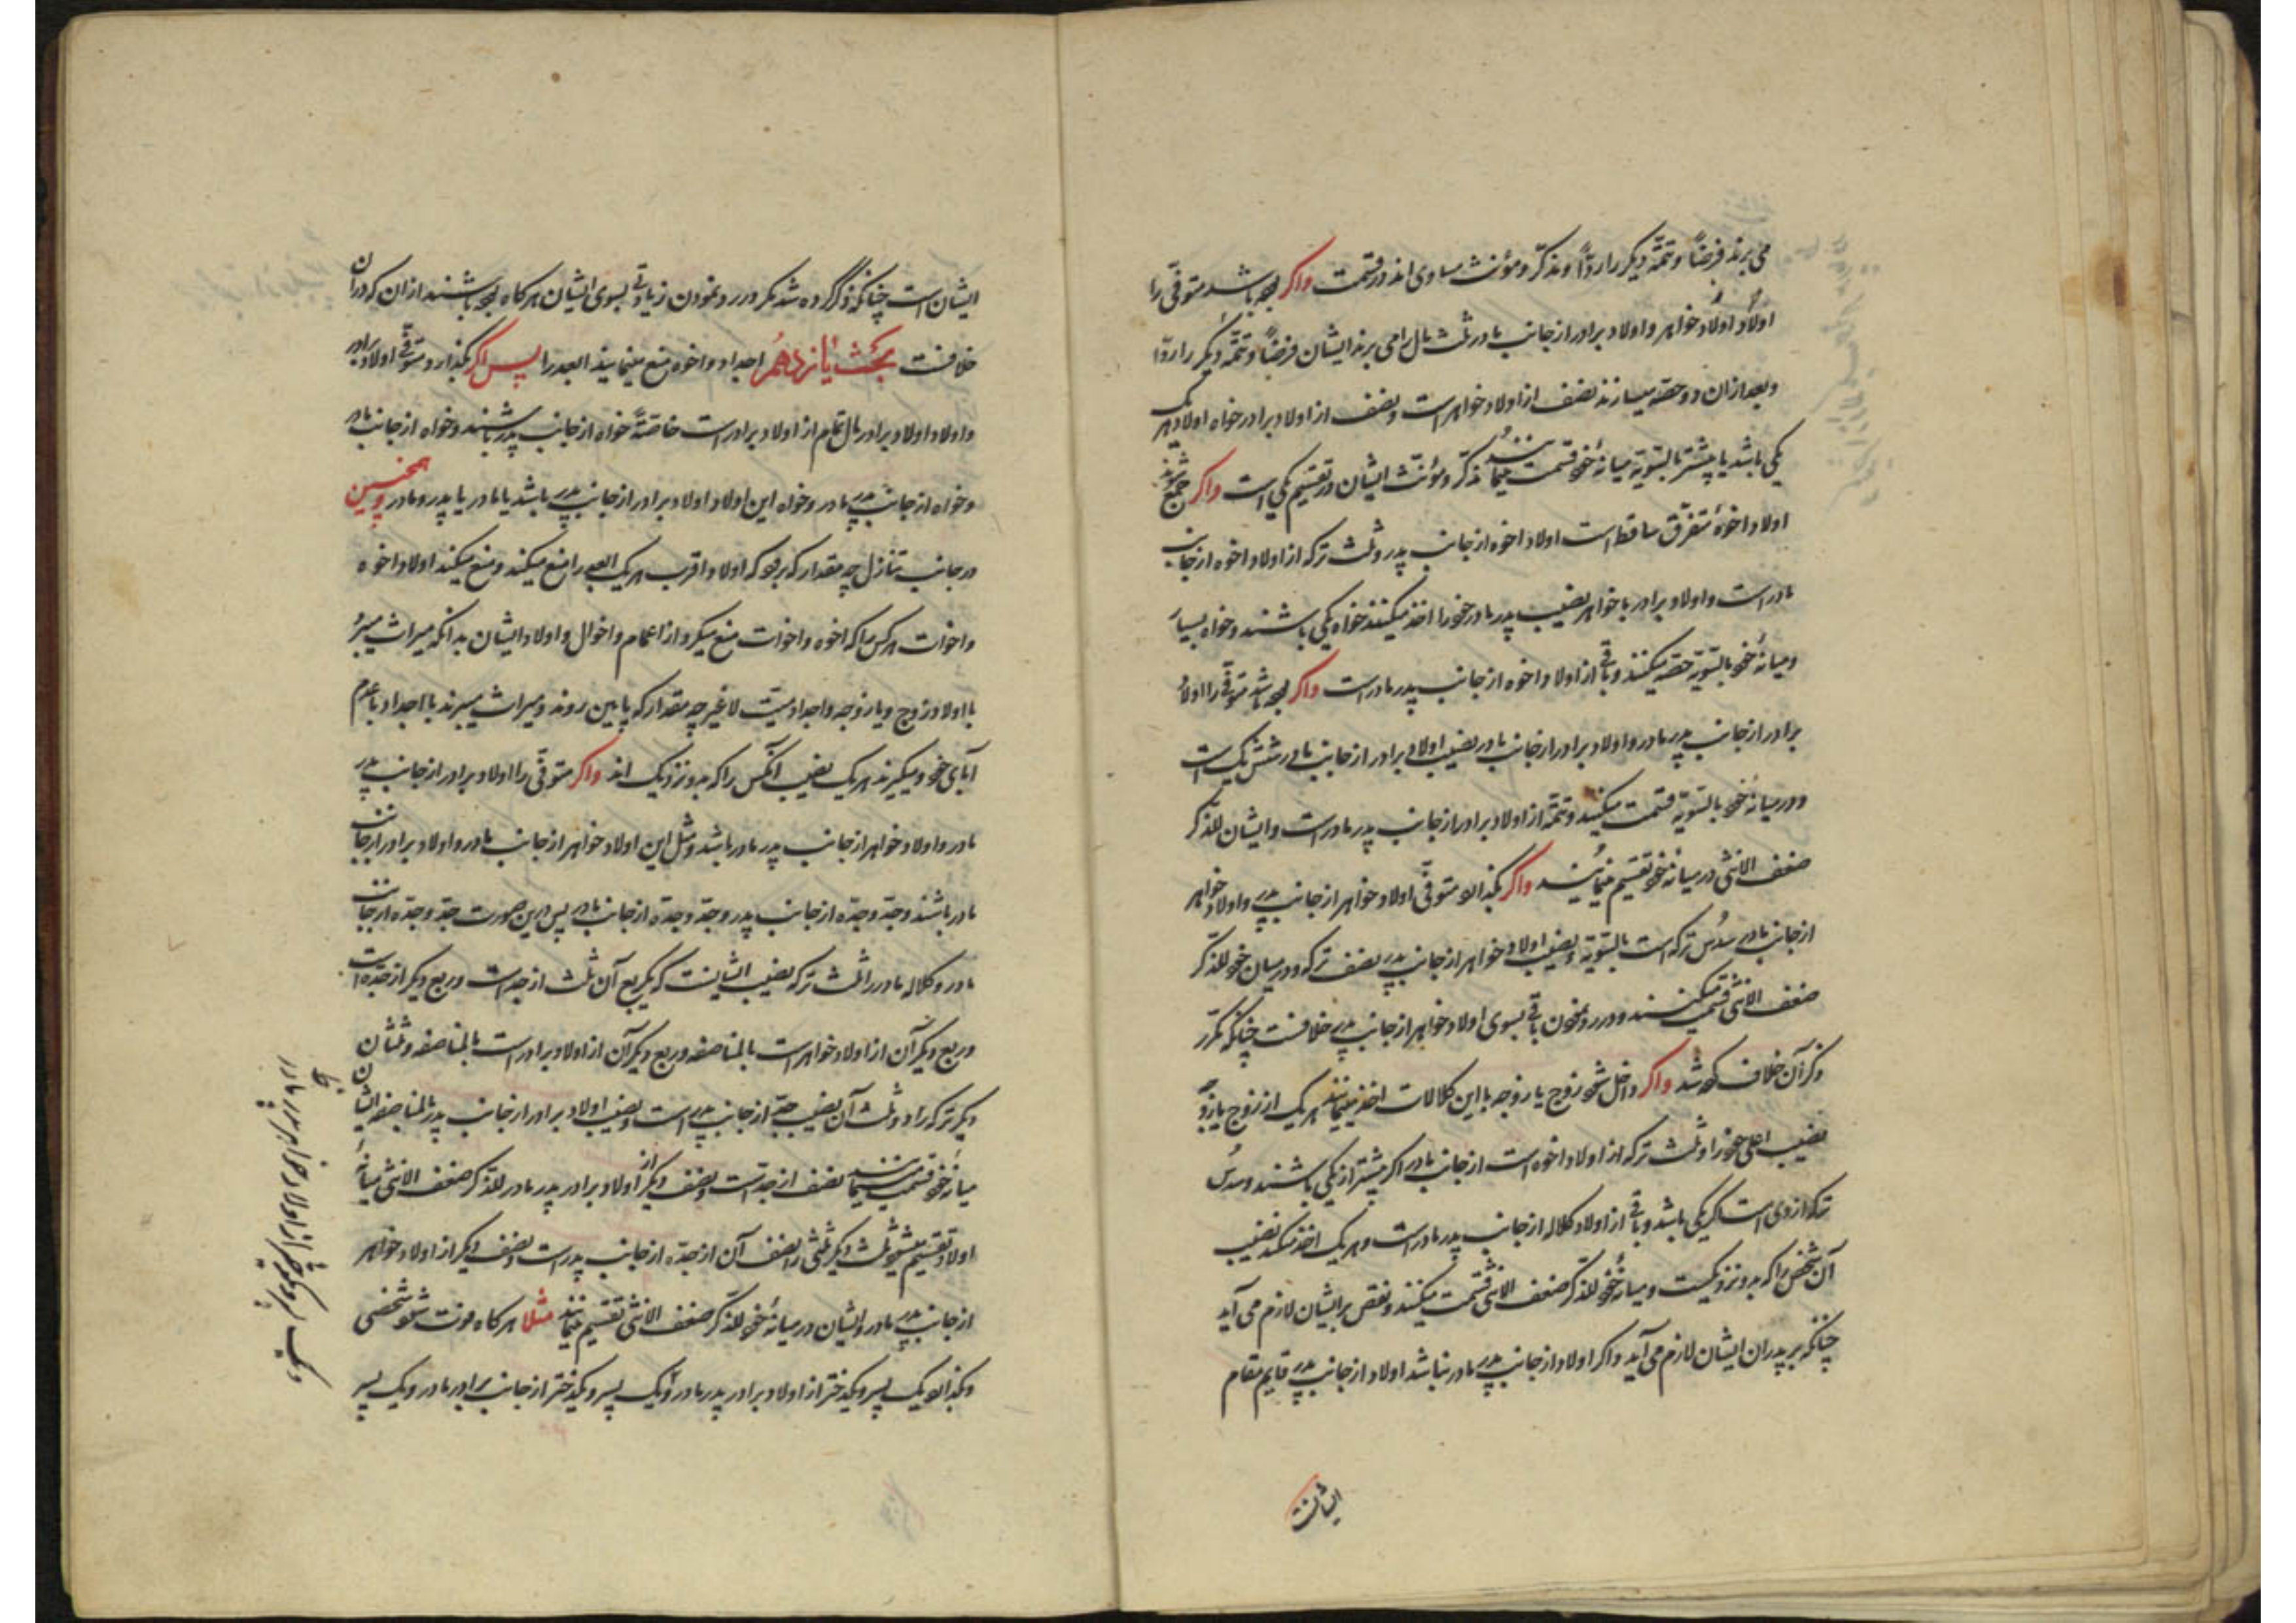 می برند فرضاً و تتمّه دیگر را ردّاً و مذکّر و مؤنث مساوی اند در قسمت واکر بوده باشد متوفّی را
اولاد اولاد خواهر و اولاد برادر از جانب مادر ثلث مال را می برند ایشان فرضاً و تتمّه دیگر را ردّاً
و بعد ازان دو حصّه میسازند نصف از اولاد خواهر است و نصف از اولاد برادر خواه اولاد هر یک
یکی باشد یا بیشتر بالسّویّة میانهٔ خود قسمت مینمایند مذکّر و مؤنّث ایشان در تقسیم یکی است واکر جمع شوند
اولاد اخوهٔ متفرّق ساقط است اولاد اخوه از جانب پدر و ثلث ترکه از اولاد اخوه از جانب
مادر است و اولاد برادر یا خواهر نصیب پدر مادر خود را اخذ میکنند خواه یکی باشند و خواه بسیار
و میانهٔ خود بالسّویّة حصّه میکنند و باقی از اولاد اخوه از جانب پدر مادر است واکر بوده باشد متوفّی را اولاد
برادر از جانب پدر مادر و اولاد برادر از جانب مادر نصیب اولاد برادر از جانب مادر شش یک است
و در میانهٔ خود بالسّویّة قسمت میکنند و تتمّه از اولاد برادر از جانب پدر مادر است و ایشان للذّکر
ضعف الانثی در میانهٔ خود تقسیم مینمایند واکر بکذارد متوفّی اولاد خواهر از جانب پدر و اولاد خواهر
از جانب مادر سُدس ترکه است بالسّویّة و نصیب اولاد خواهر از جانب پدر نصف ترکه و در میان خود للذّکر
ضعف الانثی قسمت میکنند و در رد نمودن باقی بسوی اولاد خواهر از جانب پدر خلافست چنانکه مکرّر
ذکر آن خلاف کرده شد واکر داخل شود زوج یا زوجه با این کلالات اخذ مینمایند هر یک از زوج یا زوجه
نصیب اعلی خود را و ثلث ترکه از اولاد اخوه است از جانب مادر اکر بیشتر از یکی باشند و سُدس
ترکه از وی است اکر یکی باشد و باقی از اولاد کلاله از جانب پدر مادر است و هر یک اخذ میکنند نصیب
آن شخص را که بدو نزدیکست و میانهٔ خود للذّکر ضعف الانثی قسمت میکنند و نقص بر ایشان لازم می آید
چنانکه بر پدران ایشان لازم می آید واکر اولاد از جانب پدر مادر نباشد اولاد از جانب پدر قایم مقام
ایشانست
ایشان است چنانکه ذکر کرده شد مکر در رد نمودن زیادتی بسوی ایشان هرکاه بوده باشند ازان که در ان
خلافست بحث یازدهم اجداد و اخوه منع مینمایند ابعد را پس اکر بکذارد متوفّی اولاد برادر
و اولاد اولاد برادر مال تمام از اولاد برادر است خاصّةً خواه از جانب پدر باشند و خواه از جانب مادر
و خواه از جانب پدر مادر و خواه این اولاد اولاد برادر از جانب پدر باشد یا مادر یا پدر و مادر و همچنین
در جانب تنازل چه مقدار که برود که اولاد اقرب هر یک ابعد را منع میکند و منع میکند اولاد اخوه
و اخوات هر کس را که اخوه و اخوات منع میکرد از اعمام و اخوال و اولاد ایشان بدانکه میراث میبرد
با اولاد زوج و یا زوجه و اجداد میّت لا غیر چه مقدار که پایین روند و میراث میبرند با اجداد با عدم
آبای خود و میکیرند هر یک نصیب آنکس را که بدو نزدیک اند واکر متوفّی را اولاد برادر از جانب پدر
مادر و اولاد خواهر از جانب پدر مادر باشد و مثل این اولاد خواهر از جانب مادر و اولاد برادر از جانب
مادر باشند و جدّ و جدّه از جانب پدر و جدّ و جدّه از جانب مادر پس درین صورت جدّ و جدّه از جانب
مادر و کلاله مادر را ثلث ترکه نصیب ایشانست که یک ربع آن ثلث از جد است و ربع دیکر از جدّه است
و ربع دیکر آن از اولاد خواهر است بالمناصفه و ربع دیکر آن از اولاد برادر است بالمناصفه و ثلثان
دیکر ترکه را دو ثلث آن نصیب جدّ از جانب پدر است و نصیب اولاد برادر از جانب پدر بالمناصفه ایشان
میانه خود قسمت مینمایند نصف از جد است و نصف دیکر از اولاد برادر پدر مادر للذّکر ضعف الانثی میانهٔ
اولاد تقسیم میشود ثلث دیکر ثلثی را نصف آن از جدّه از جانب پدر است و نصف دیکر از اولاد خواهر
از جانب پدر مادر و ایشان در میانهٔ خود للذّکر ضعف الانثی تقسیم مینمایند مثلا هرکاه فوت شود شخصی
و بکذارد یک پسر و یکدختر از اولاد برادر پدر مادر و یک پسر و یکدختر از جانب برادر مادر و یک پسر